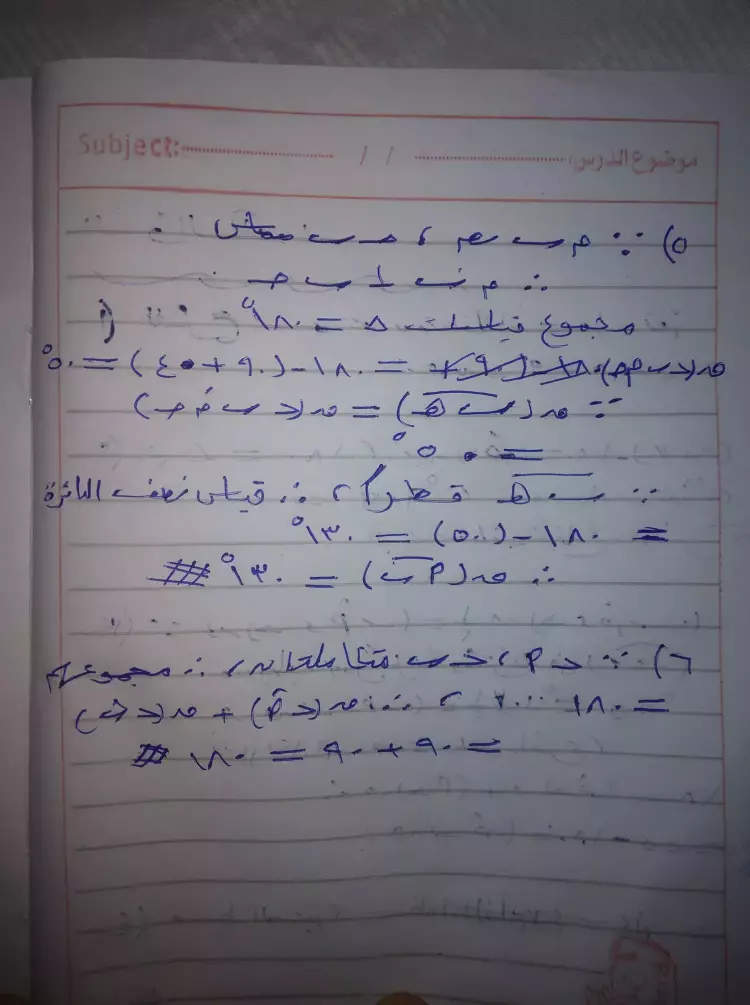 Subject: / / موضوع الدرس:
٥) ∵ م ب ، ح ب مماس
∴ م ب ⊥ ب ح
∵ مجموع قياسات Δ = ١٨٠°
= ١٨٠ - (٩٠ + ٤٠) = ٥٠°
∵ ق(ب هـ) = ق(د ب م ح)
= ٥٠°
∵ ب هـ قطراً ، ∴ قياس نصف الدائرة
= ١٨٠ - (٥٠) = ١٣٠°
∴ ق(٢ ب) = ١٣٠° #
٦) ∵ د ٢ ، د ب متكاملتان ، ∴ مجموعهم
= ١٨٠ ، ∴ ق(د ٢) + ق(د ب)
= ٩٠ + ٩٠ = ١٨٠ #